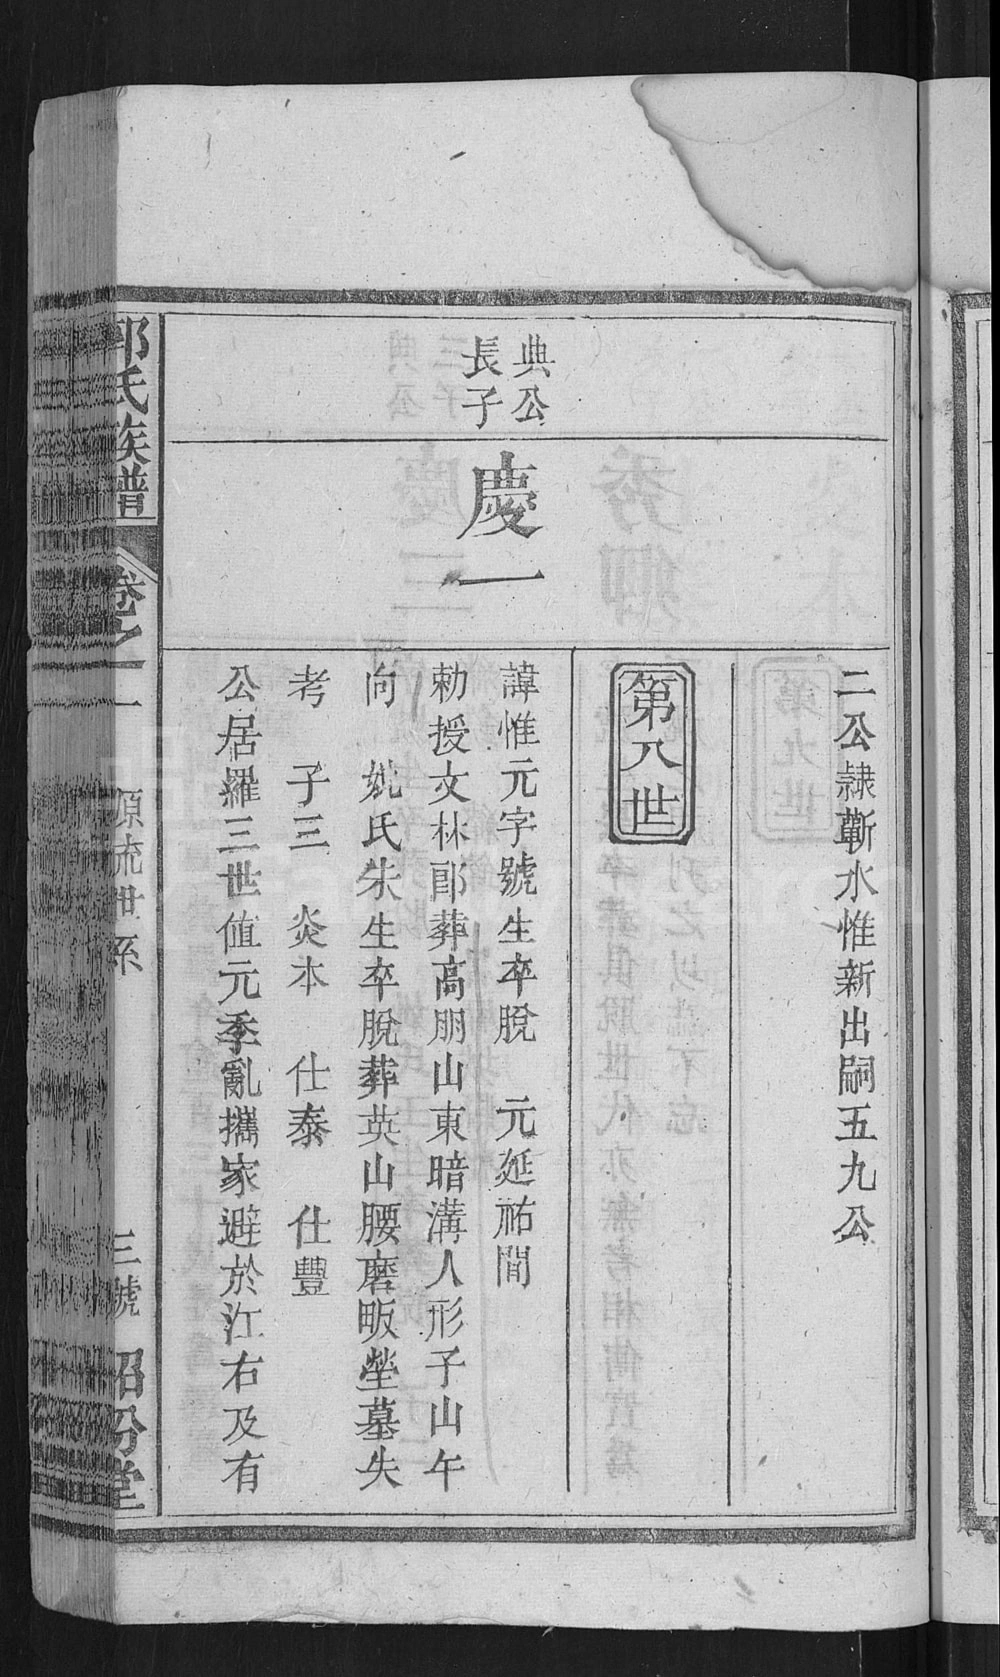 二公隷蘄水惟新出嗣五九公
第八世
典公
長子
慶一
諱惟元字號生卒脫　元延祐間
勅授文林郎葬高朋山東暗溝人形子山午
向　妣氏朱生卒脫葬英山腰磨畈塋墓失
考　子三　炎本　仕泰　仕豐
公居羅三世值元季亂攜家避於江右及有
郭氏族譜
卷之一
源流世系
三號